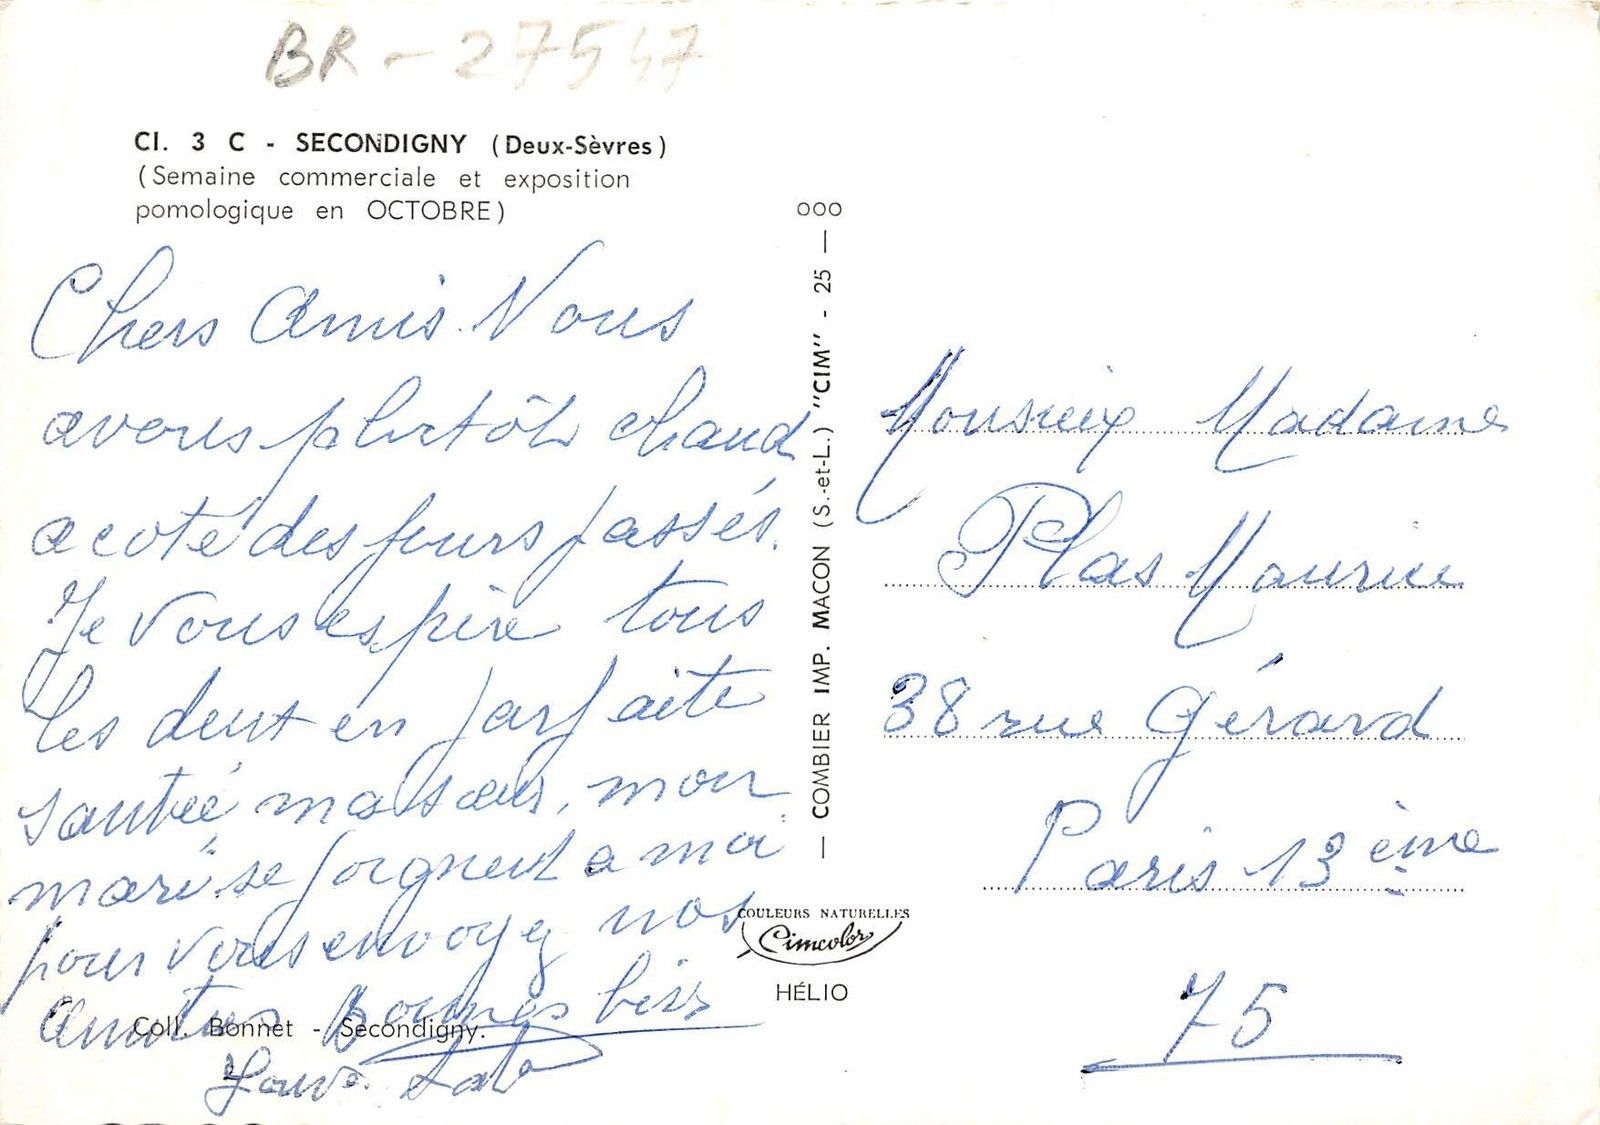 BR - 27547
Cl. 3 C - SECONDIGNY (Deux-Sèvres)
(Semaine commerciale et exposition
pomologique en OCTOBRE)
Chers Amis. Nous
avons plutôt chaud
a coté des jours passés.
Je vous espère tous
les deux en parfaite
santée ma sœur, mon
mari se joignent a moi
pour vous envoyez nos
Bonnes
Coll. Bonnet - Secondigny.
OOO
— COMBIER IMP. MACON (S.-et-L.) "CIM" - 25 —
COULEURS NATURELLES
Cimcolor
HÉLIO
Monsieur Madame
Plas Maurice
38 rue Gérard
Paris 13 ème
75